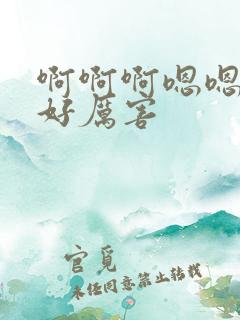 啊啊啊嗯嗯
好厉害
官觅
未经同意禁止转载